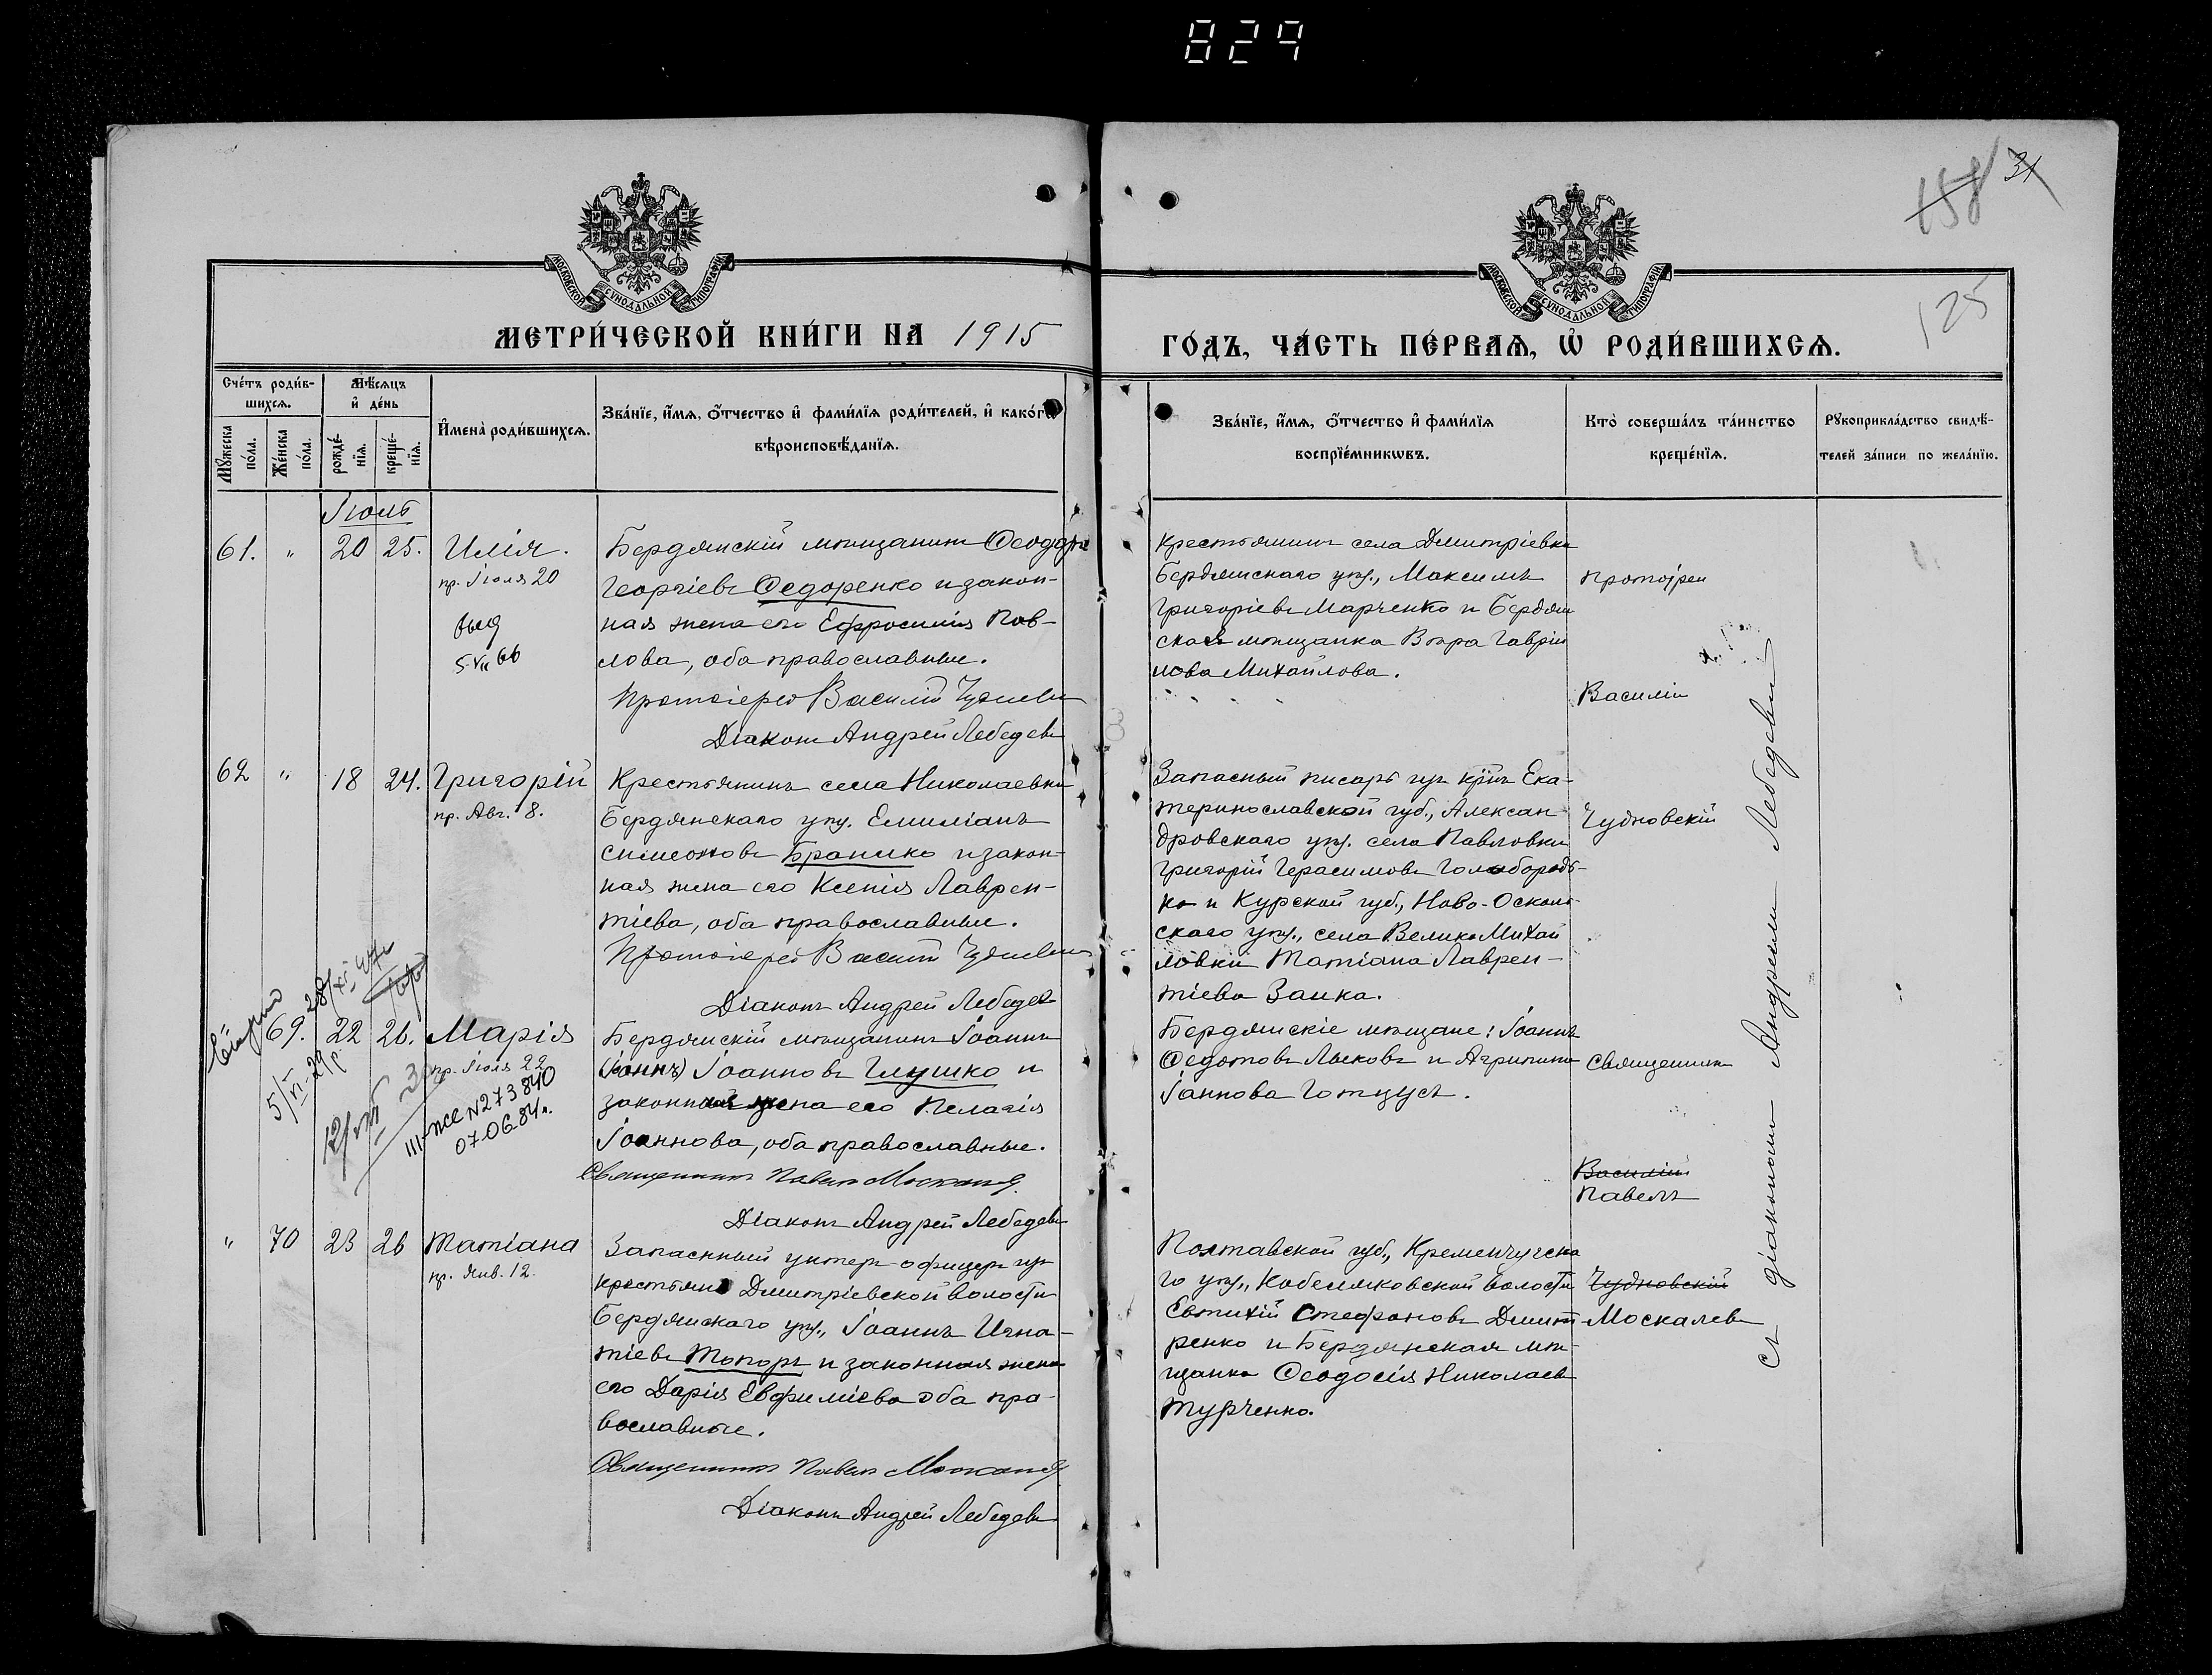 829
158 31
125
МОСКОВСКОЙ СѴНОДАЛЬНОЙ ТИПОГРАФІИ
МОСКОВСКОЙ СѴНОДАЛЬНОЙ ТИПОГРАФІИ
МЕТРИ́ЧЕСКОЙ КНИ́ГИ НА 1915
ГО́ДЪ, ЧА́СТЬ ПЕ́РВАѦ, Ѡ РОДИ́ВШИХСѦ.
Сче́тъ роди́в-
шихсѧ.
Мѣ́сѧцъ
и҆ де́нь
Мꙋ́жеска
по́ла.
Же́нска
по́ла.
рожде́-
нїѧ.
креще́-
нїѧ.
И҆мена̀ роди́вшихсѧ.
Зва́нїе, и҆́мѧ, ѻ҆́тчество и҆ фами́лїѧ роди́телей, и҆ како́гѡ
вѣроисповѣ́данїѧ.
Зва́нїе, и҆́мѧ, ѻ҆́тчество и҆ фами́лїѧ
воспрїе́мникѡвъ.
Кто̀ соверша́лъ та́инство
креще́нїѧ.
Рꙋкоприкла́дство свидѣ́-
телей за́писи по жела́нїю.
Іюль
61. " 20 25. Илія.
пр. Іюля 20
выд
5 VII 66
Бердянскій мѣщанинъ Ѳеодоръ
Георгіевъ Ѳедоренко и закон-
ная жена его Ефросинія Пав-
лова, оба православные.
Протоіерей Василій
Діаконъ Андрей Лебедевъ
Крестьянинъ села Дмитріевки
Бердянскаго уѣз., Максимъ
Григоріевъ Марченко и Бердян
ская мѣщанка Вѣра Гаврии
лова Михайлова.
протоіреи
Василіи
62 " 18 24. Григорій
пр. Авг. 8.
Крестьянинъ села Николаевки
Бердянскаго уѣз. Емиліанъ
Симеоновъ Бранико и закон-
ная жена его Ксенія Лаврен-
тіева, оба православные.
Протоіерей Василій
Діаконъ Андрей Лебедев
Запасный писарь изъ кр꙼нъ Ека-
теринославской губ., Алексан-
дровскаго уѣз. села Павловки
Григорій Герасимовъ Голобородь-
ко и Курской губ., Ново-Осколь
скаго уѣз., села Велико Михай
ловки Татіана Лаврен-
тіева Заика.
Чудновскій
69. 22 26. Марія
пр. Іюля 22
5/VI-29 р.
III-ЖС N273840
07.06.84 г.
Бердянскій мѣщанинъ Іоаннъ
(Іоаннъ) Іоанновъ Глушко и
законная жена его Пелагія
Іоаннова, оба православные.
Священникъ Павелъ Москалевъ
Діаконъ Андрей Лебедевъ
Бердянскіе мѣщане: Іоаннъ
Ѳедотовъ Лысковъ и Агрипина
Іаннова Готцусъ.
Священникъ
Василій
Павелъ
" 70 23 26 Татіана
пр. Янв. 12.
Запасный унтеръ офицеръ изъ
крестьянъ Дмитріевской волости
Бердянскаго уѣз., Іоаннъ Игна-
тіевъ Топоръ и законная жена
его Дарія Евфиміева оба пра-
вославные.
Священникъ Павелъ Москалевъ
Діаконъ Андрей Лебедевъ
Полтавской губ., Кременчугска
го уѣз., Кобеляковской волости
Евтихій Стефановъ Дмит-
ренко и Бердянская мѣ-
щанка Ѳеодосія Николаев
Турченко.
Чудновскій
Москалевъ
съ діакономъ Андреемъ Лебедевымъ